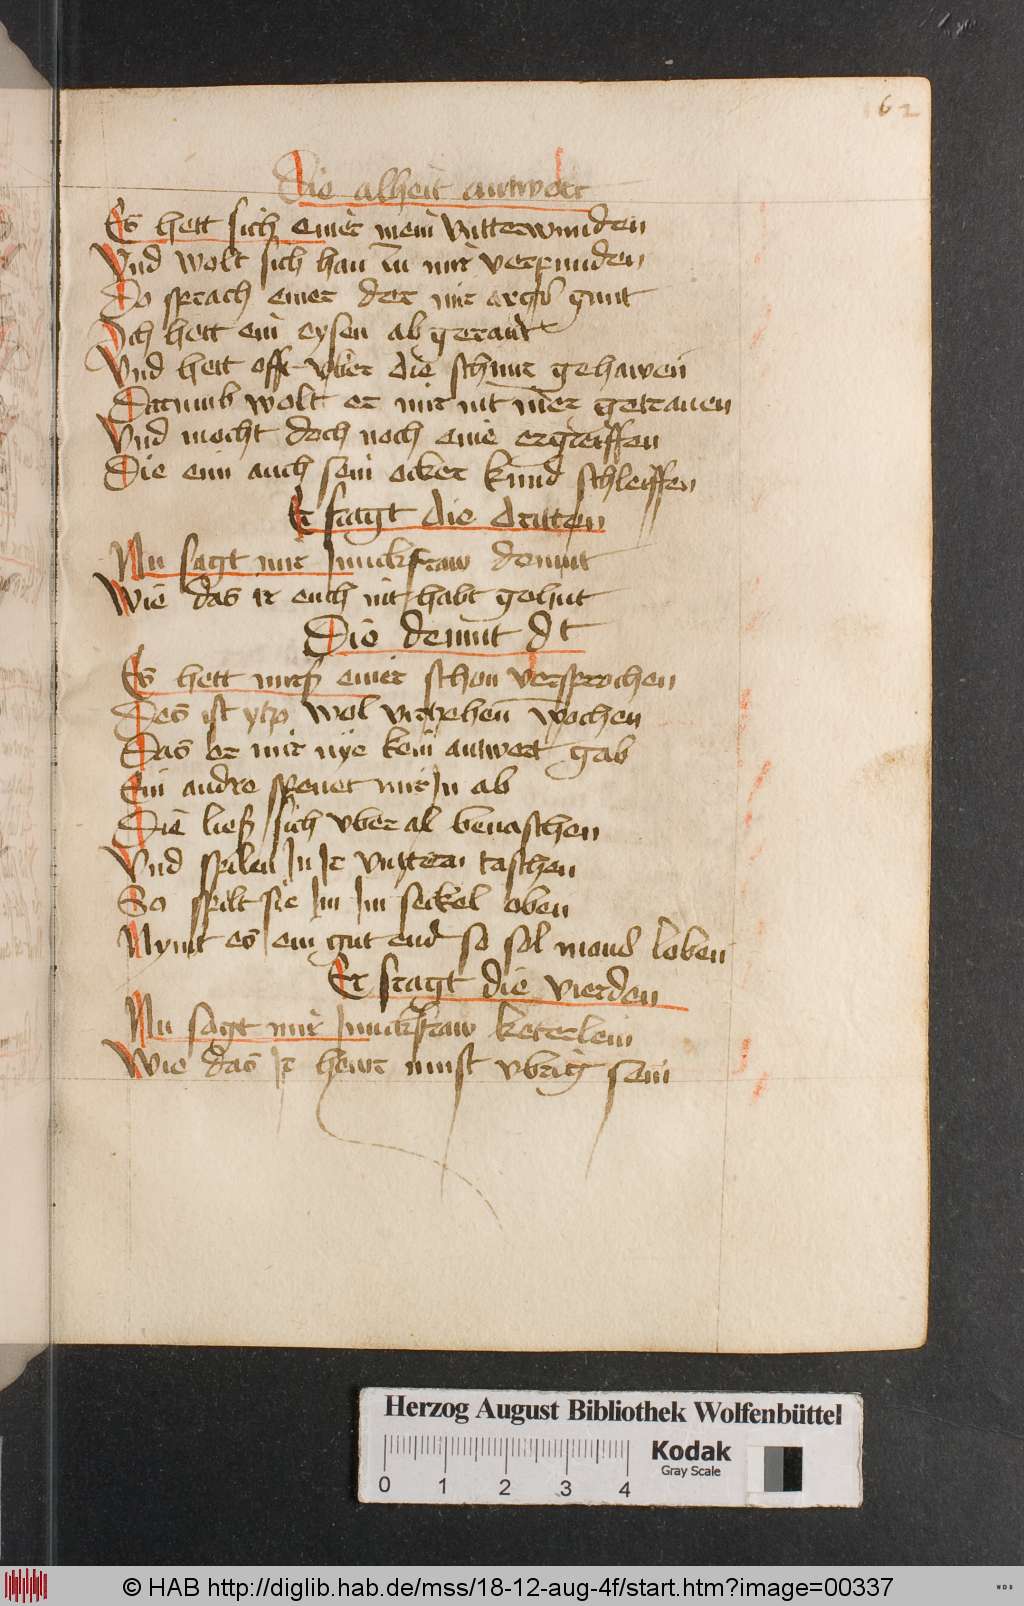 62
Die alheit antwort
Es hett sich einer mein vntterwunden
Vnd wolt sich han zu mir verpunden
Do sprach einer der mir args gunt
Ich hett ein eysen ab gerant
Vnd hett offt vber die schnur gehawen
Darumb wolt er mir nit mer getrauen
Vnd mocht doch noch eine ergreiffen
Die eim auch sein ecker kund schleiffen
Er fragt die dritten
Nu sagt mir Junckfraw demut
Wie das ir euch nit habt gehut
Die demut dt
Es hett mirß einer schon versprochen
Des ist ytzo wol virzehen wochen
Das er mir nye kein antwort gab
Ein andre spenet mir In ab
Die ließ sich vber al benaschen
Vnd spilen In Ir vnttern taschen
So spilt sie Im Im seckel oben
Nymt es ein gut end so sol mans loben
Er fragt die vierden
Nu sagt mir Junckfraw keterlein
Wie das Ir hewr must vbrig sein
Herzog August Bibliothek Wolfenbüttel
Kodak
Gray Scale
0 1 2 3 4
© HAB http://diglib.hab.de/mss/18-12-aug-4f/start.htm?image=00337